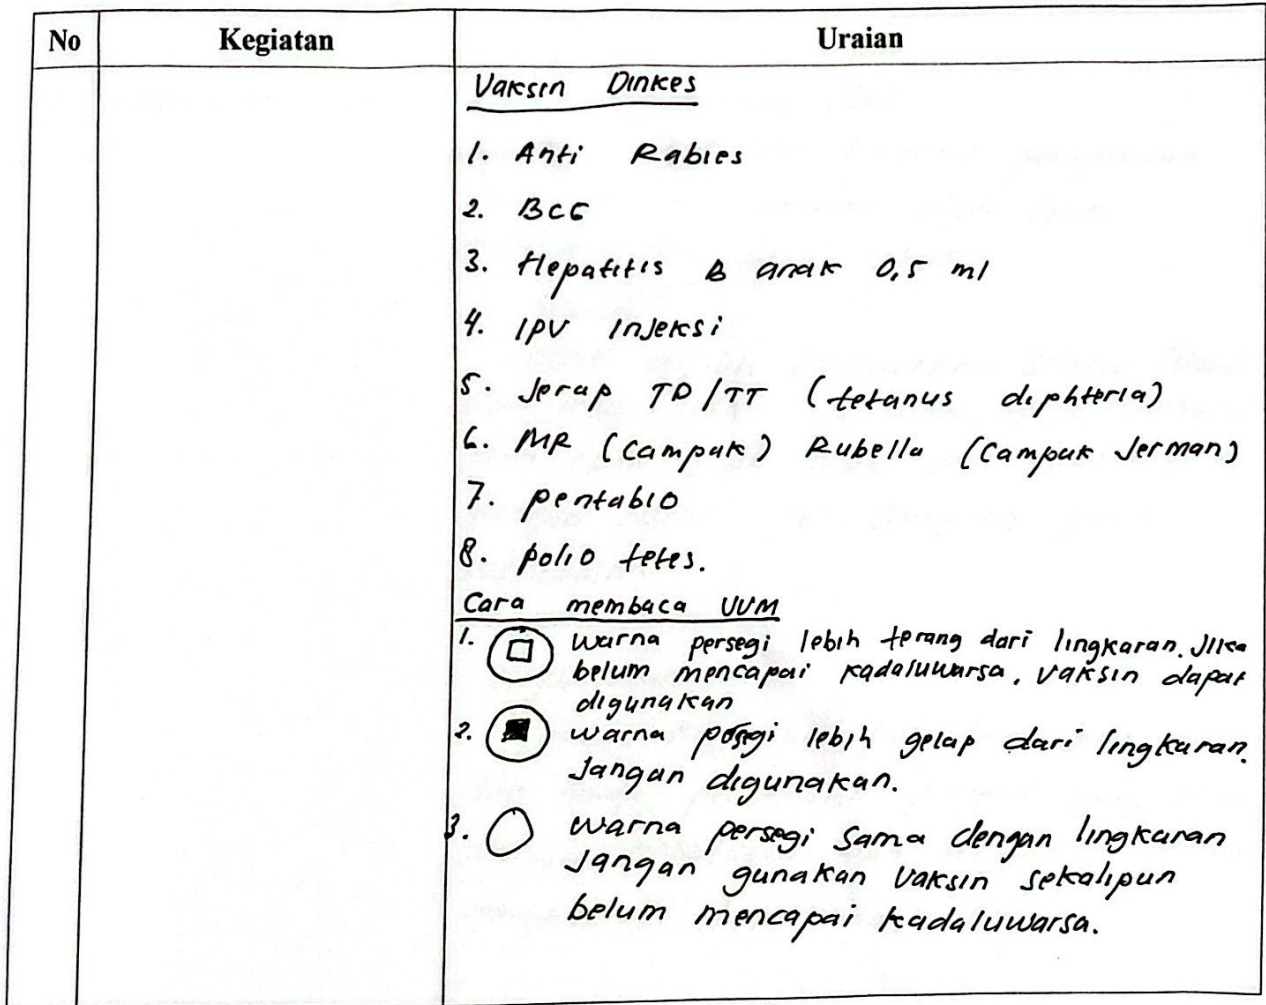 No Kegiatan Uraian
Vaksin Dinkes
1. Anti Rabies
2. BCG
3. Hepatitis B anak 0,5 ml
4. IPV Injeksi
5. Jerap TD/TT (tetanus diphteria)
6. MR (Campak) Rubella (Campak Jerman)
7. pentabio
8. polio tetes.
Cara membaca VVM
1. warna persegi lebih terang dari lingkaran. Jika
belum mencapai kadaluwarsa, vaksin dapat
digunakan
2. warna persegi lebih gelap dari lingkaran.
Jangan digunakan.
3. warna persegi sama dengan lingkaran
Jangan gunakan vaksin sekalipun
belum mencapai kadaluwarsa.